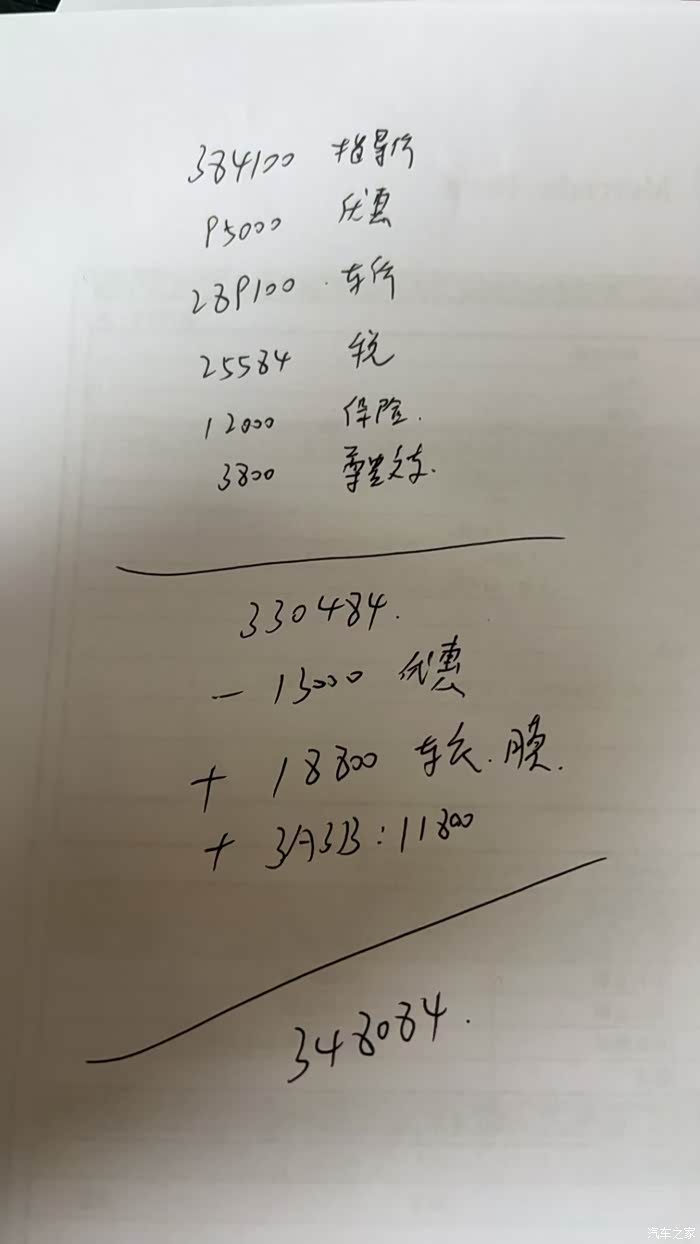 384100 指导价
95000 优惠
289100 车价
25584 税
12000 保险.
3800
330484.
- 13000 优惠
+ 18800 车衣.膜.
+ 3A3B:11800
348084.
汽车之家